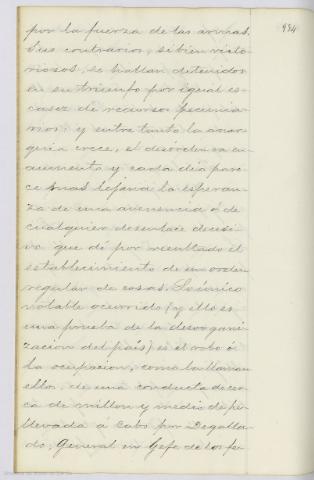 934
por la fuerza de las armas.
Sus contrarios, si bien victo-
riosos, se hallan detenidos
en su triunfo por igual es-
casez de recursos pecunia-
rios; y entre tanto la anar-
quía crece, el desórden va en
aumento y cada dia pare-
ce mas lejana la esperan-
za de una avenencia ó de
cualquiera desenlace decisi-
vo que dé por resultado el
establecimiento de un orden
regular de cosas. Lo único
notable ocurrido (y ello es
una prueba de la desorgani-
zacion del país) es el robo ó
la ocupacion, como la llaman
ellos, de una conducta de cer-
ca de millon y medio de ps.
llevada á cabo por Degolla-
do, General en Gefe de los fe-